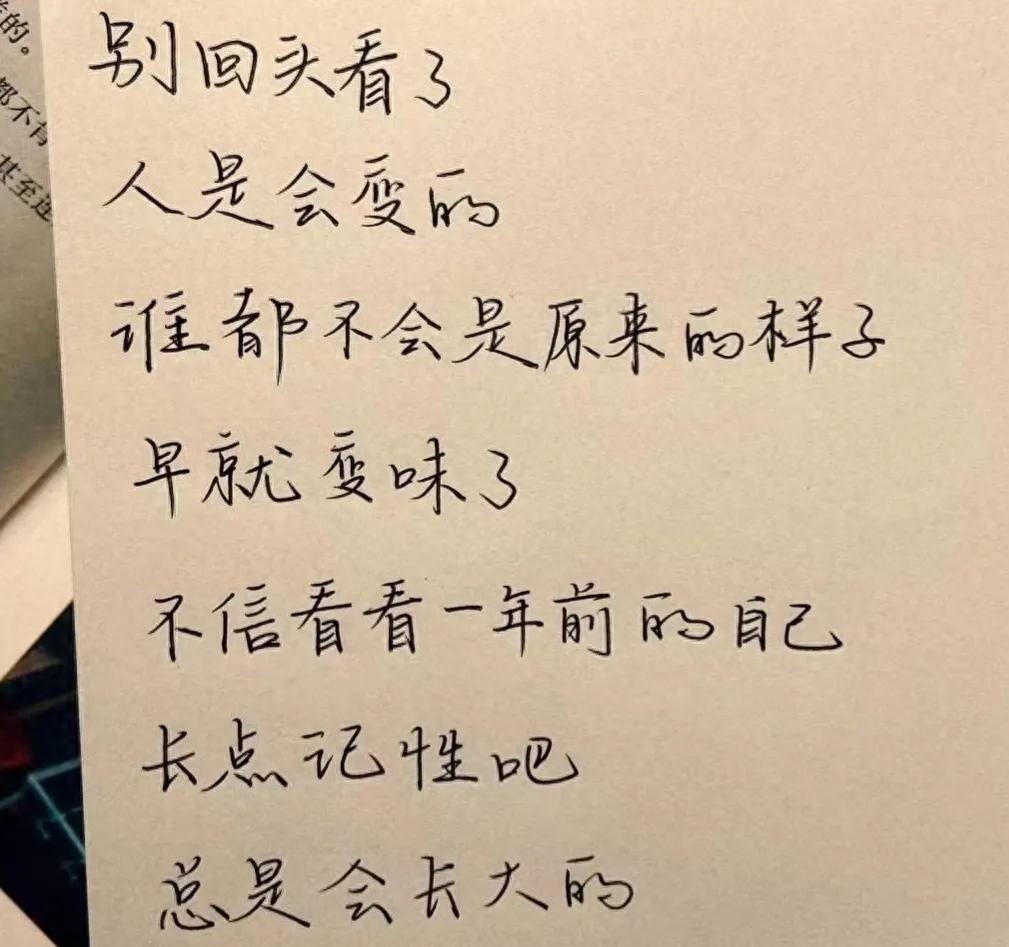 样的。
都不有
甚至连
别回头看了
人是会变的
谁都不会是原来的样子
早就变味了
不信看看一年前的自己
长点记性吧
总是会长大的